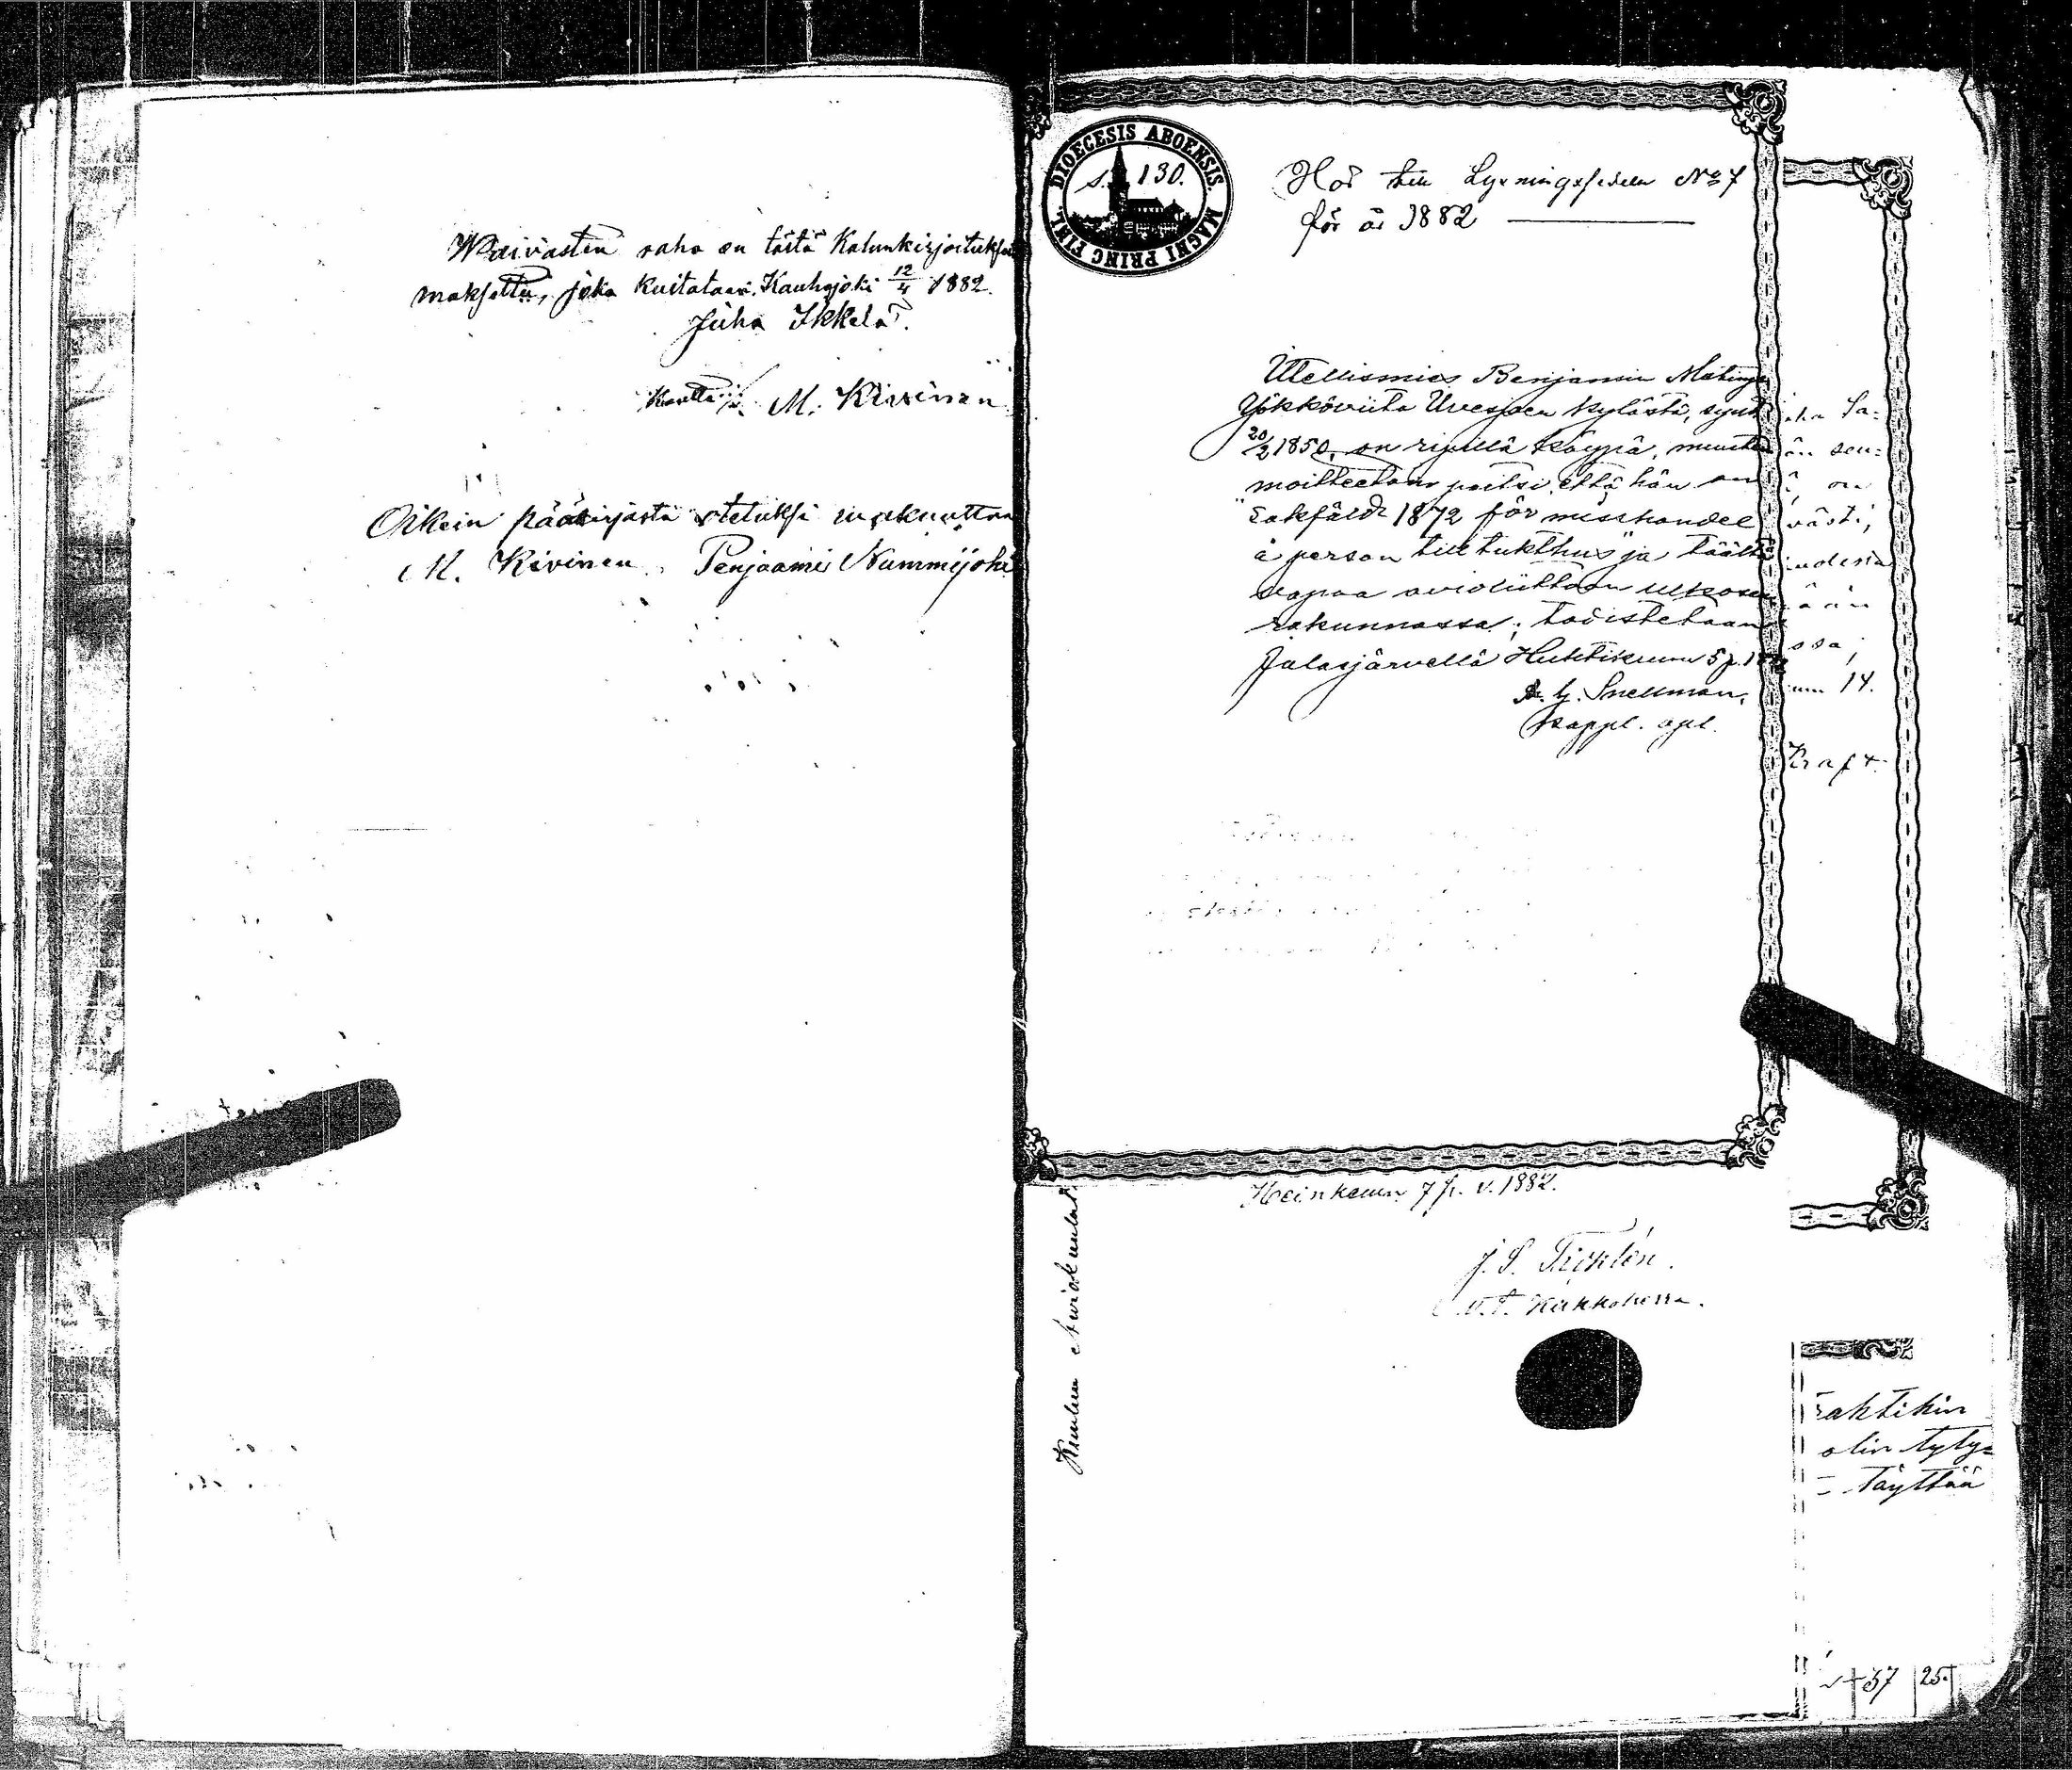 Waivasten raha on tästä Kalunkirjoituksesta
maksettu, joka kuitataan. Kauhajoki 12/4 1882.
Juha Ikkelä.
M. Kivinen
Oikein pääkirjasta otetuksi wakuuttaa
M. Kivinen. Penjaami Nummijoki
DIOECESIS ABOENSIS. MAGNI PRINC FINL.
s. 130.
Hör till Lysningssedeln No 7
för år 1882
Itellismies Benjamin Matinp.
Yökköviita Uvesjoen kylästä, synt.
20/2 1850, on ripillä käypä, muuten
moitteeton paitsi että hän on
"sakfäld 1872 för misshandel
å person till tukthus" ja täältä
vapaa avioliittoon ulkoseu
rakunnassa; todistetaan
Jalasjärvellä Huhtikuun 5 p. 1882
A. G. Snellman.
kappl. apl.
iha Sa=
än seu=
ä, on
västi,
uudessa
ään
ssa;
uun 14.
Kraft.
Heinkuun 7 p. v. 1882.
v.t. Kirkkoherra.
Kuulun Aviokuulut.
raktikin
olin tyty=
täyttää
57 25